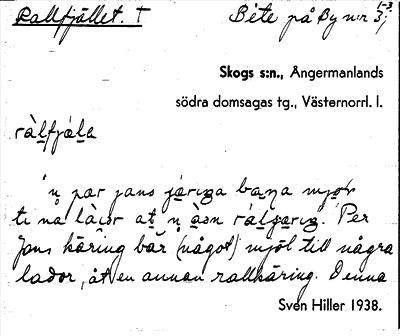 Rallfjället. T Bete på By n:r 3; 1-3
Skogs s:n., Ångermanlands
södra domsagas tg., Västernorrl. l.
ràlfjäla
'n par jans järiga baṇa mjøḷ
ti nå làdor at n àɔn rálçäriŋ. 'Per
Jons käring bär (något) mjöl till några
lador, åt en annan rallkäring. Denna
Sven Hiller 1938.